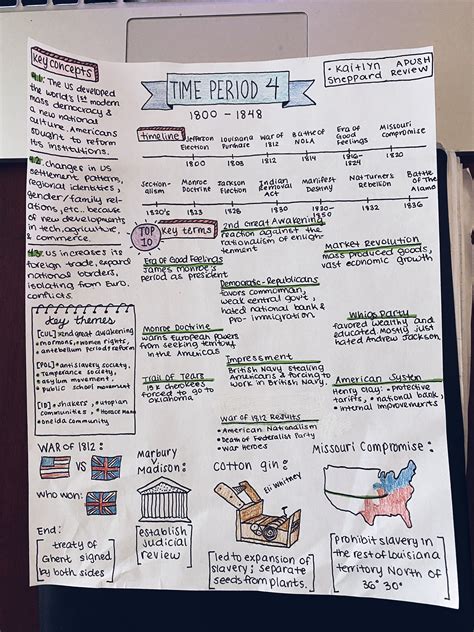 Key concepts
4.1: The US developed
the world's 1st modern
mass democracy &
a new national
culture. Americans
sought to reform
its institutions.
4.2: changes in US
settlement patterns,
regional identities,
gender/family rel-
ations, etc.. because
of new developments
in tech, agriculture,
& commerce.
4.3: US increases its
foreign trade, expand
national borders,
isolating from Euro.
conflicts.
TIME PERIOD 4
1800 - 1848
• Kaitlyn
Sheppard
APUSH
Review
timeline
Jefferson
Election
Louisiana
Purchase
War of
1812
Battle of
NOLA
Era of
Good
Feelings
Missouri
compromise
1800
1803
1812
1814
1816-
1824
1820
Section-
alism
Monroe
Doctrine
Jackson
Election
Indian
Removal
Act
Manifest
Destiny
Nat Turner's
Rebellion
Battle of
The Alamo
1820's
1823
1828
1830
1830-
1850
1831
1836
TOP
10
key terms
2nd Great Awakening
reaction against the
rationalism of enligh-
tenment
Era of Good Feelings
James Monroe's
period as president
Market Revolution
mass produced goods,
vast economic growth
Democratic-Republicans
favors common man,
weak central gov't,
hated national bank &
pro-immigration
Monroe Doctrine
warns European powers
from seeking territory
in the Americas
Whigs Party
favored wealthy and
educated. Mostly just
hated Andrew Jackson.
Impressment
British Navy stealing
Americans & forcing to
work in British Navy.
Trail of Tears
15k cherokees
forced to go to
oklahoma
American System
Henry Clay: • protective
tariffs, • national bank,
• internal improvements
War of 1812 Results
• American Nationalism
• Death of Federalist Party
• War Heroes
key themes
[CUL] • 2nd great awakening
• mormons, • women rights,
• antebellum period + reform
[POL] • anti slavery society,
• Temperance society,
• asylum movement,
• Public school movement
[ID] • shakers, • utopian
communities, • Horace Mann
• oneida community
WAR OF 1812:
VS
who won:
End:
treaty of
Ghent signed
by both sides
Marbury
v
Madison:
establish
judicial
review
Cotton gin:
Eli Whitney
led to expansion of
slavery; separate
seeds from plants.
Missouri Compromise:
prohibit slavery in
the rest of Louisiana
territory North of
36° 30°